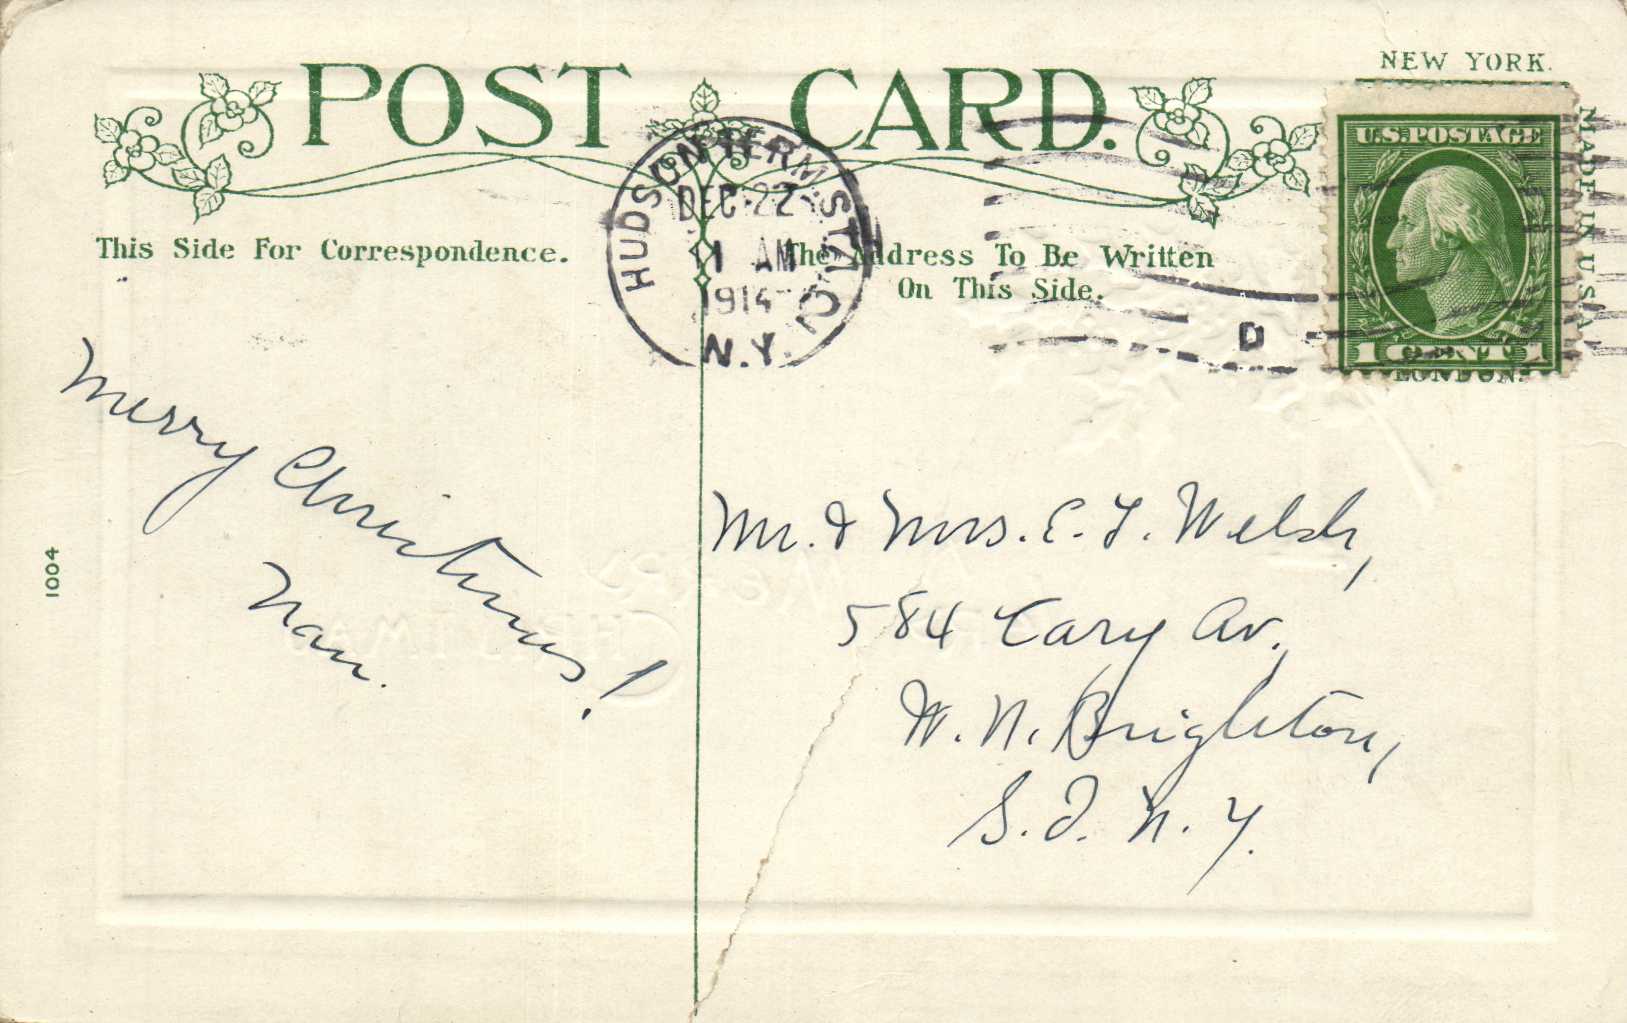 NEW YORK.
POST CARD.
U.S. POSTAGE
MADE IN U.S.A.
1 CENT 1
LONDON.
HUDSON TERM STA.
DEC 22
1 AM
1914
N.Y.
D
This Side For Correspondence.
The Address To Be Written
On This Side.
Merry Christmas!
Nan.
Mr. & Mrs. E. T. Welsh,
584 Cary Av.,
W. N. Brighton,
S. I. N. Y.
1004
MERRY
CHRISTMAS